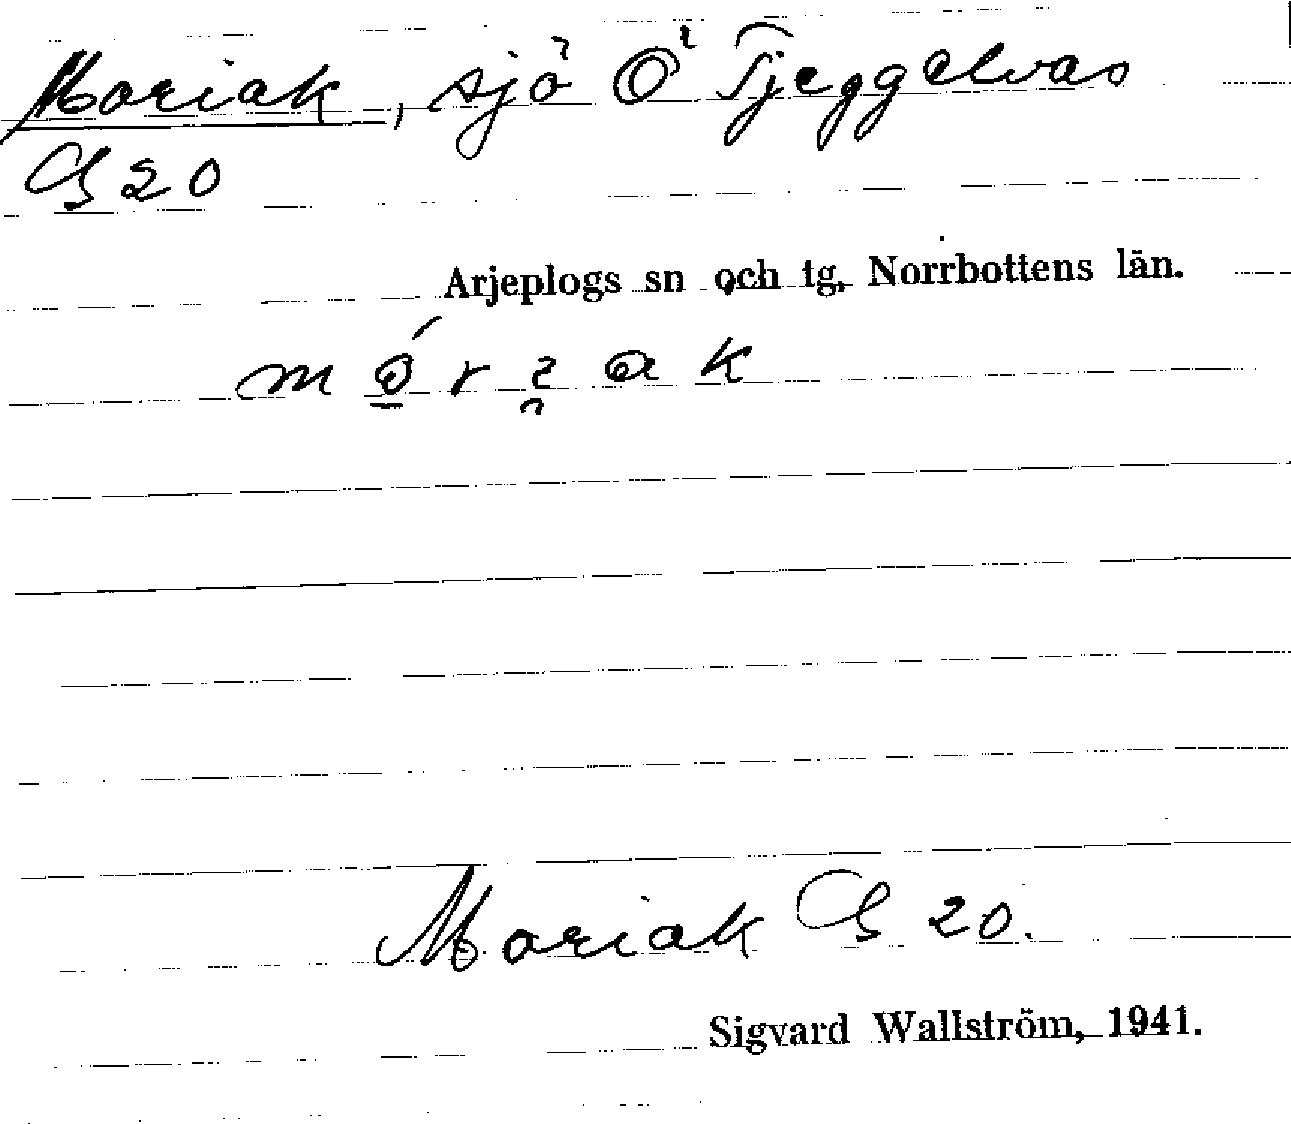 Moriak, sjö Ö i Tjeggelvas
G 20
Arjeplogs sn och tg, Norrbottens län.
Moriak G 20.
Sigvard Wallström, 1941.